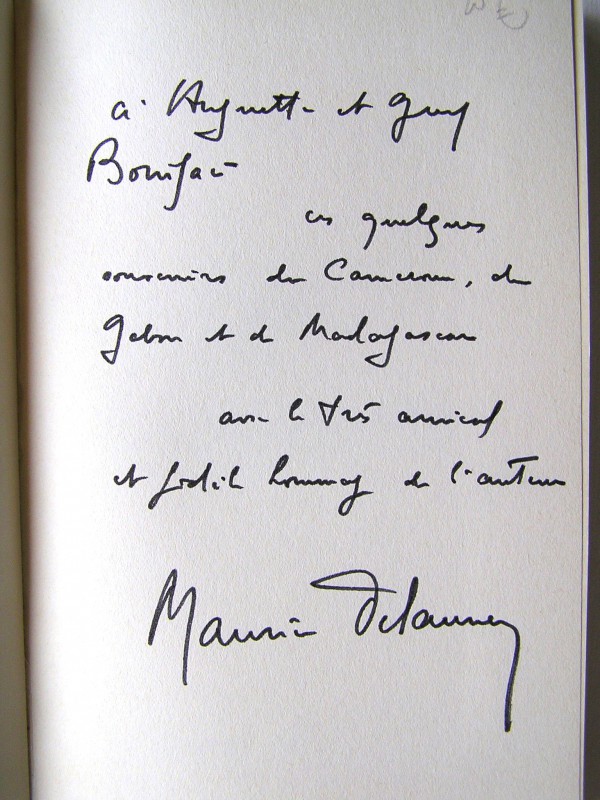 à Huguette et Guy
Boniface
ces quelques
souvenirs du Cameroun, du
Gabon et de Madagascar
avec le très amical
et fidèle hommage de l'auteur
Maurice Delauney